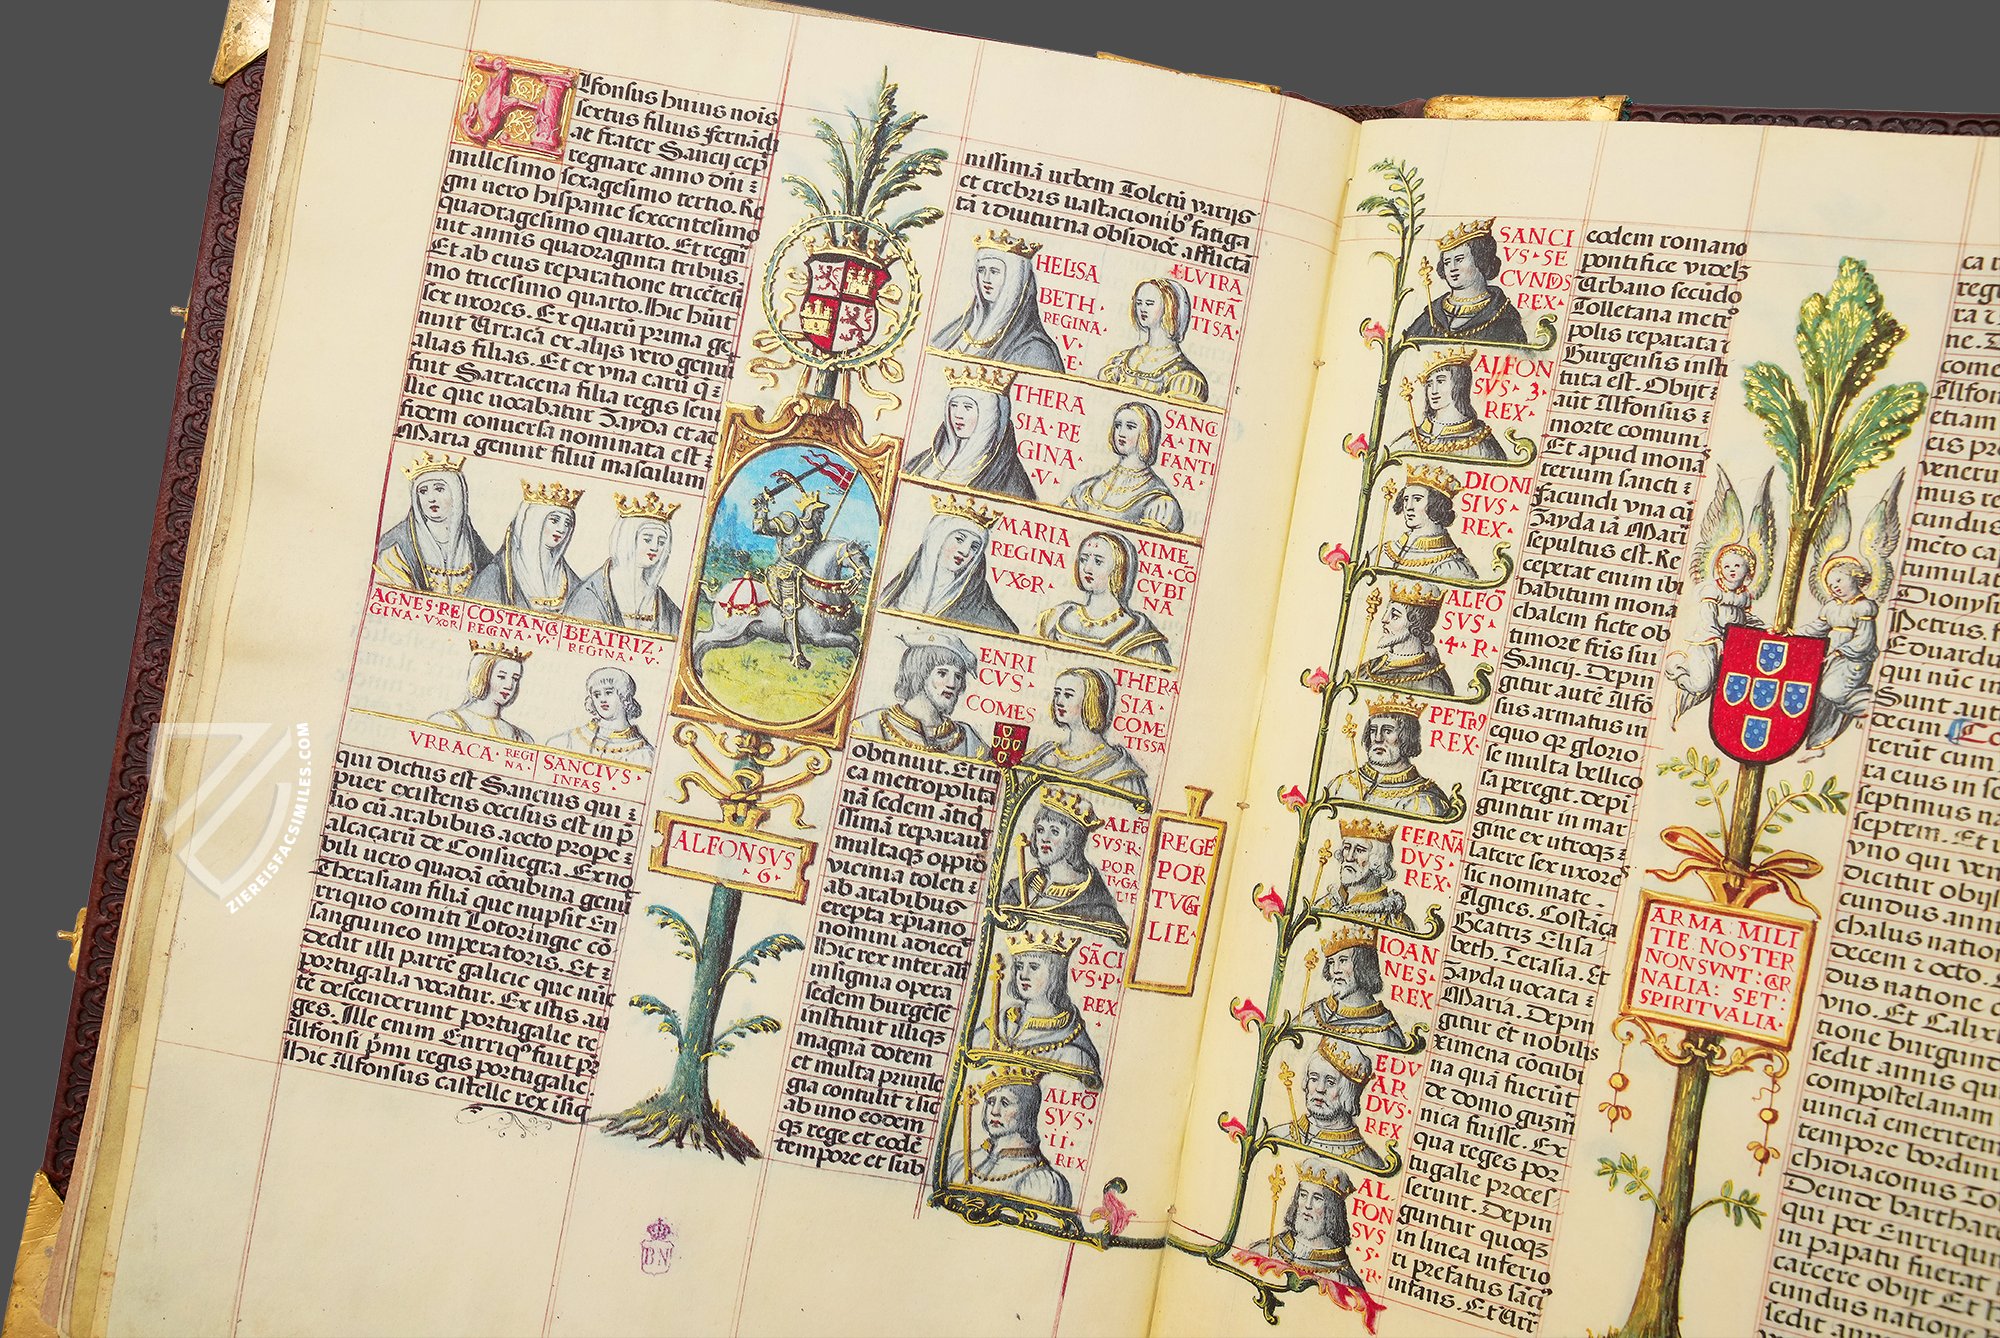 Alfonsus huius nois
sextus filius fernādi
ac frater Sancij cep
regnare anno dni :
millesimo sexagesimo tertio. Re
gni uero hispanie sexcentesimo
quadragesimo quarto. Et regn
uit annis quadraginta tribus.
Et ab eius reparatione tricētesi
mo tricesimo quarto. Hic hūit
sex uxores. Ex quarū prima ge
nuit Urracā ex alijs vero genuit
alias filias. Et ex vna earū q̄
fuit Sarracena filia regis seui
llie que uocabatur Zayda et ad
fidem conuersa nominata est :
Maria genuit filiū masculum
AGNES·RE
GINA·VXOR
COSTANCA
REGINA·V·
BEATRIZ·
REGINA·V·
VRRACA·REGI
NA·
SANCIVS·
INFAS·
qui dictus est Sancius qui :
puer existens occisus est in p
lio cū arabibus acto prope :
alcaçarū de Consuegra. Ex no
bili uero quadā cōcubina genu
Therasiam filiā que nupsit En
rriquo comiti Lotoringie cō
sanguineo imperatoris. Et :
dedit illi partē galicie que nūc
portugalia vocatur. Ex istis au
tē descenderunt portugalie re
ges. Ille enim Enrriq⁹ fuit pr̄
Alfonsi p̄mi regis portugalie
Hic Alfonsus castelle rex isiq̄
ALFONSVS
·6·
nissimā urbem Toletū varijs
et crebris uastacionib⁹ fatiga
tā ⁊ diuturna obsidiōe afflictā
HELISA
BETH·
REGINA·
·V·
E·
ELVIRA
INFĀ
TISA·
THERA
SIA·RE
GINA·
·V·
SANC
A·IN
FANTI
SA·
MARIA
REGINA
VXOR·
XIME
NA·CŌ
CVBI
NA
ENRI
CVS·
COMES
THERA
SIA·
COME
TISSA
obtinuit. Et in
ea metropolita
nā sedem ātiq̄
ssimā reparauit
multaq̄ oppid
vicinia toleti :
ab arabibus
erepta xpiano
nomini adiecit
Hic rex inter alī
insignia opera
sedem burgēse
instituit illiq̄
magnā dotem
et multa priuile
gia contulit ⁊ sic
ab uno eodem
q̄ rege et eodē
tempore et sub
ALFŌ
SVS·R·
POR
TVGA
LIE
SĀCI
VS·P·
REX
ALFŌ
SVS·
·II·
REX
REGE
POR
TVGA
LIE·
SANCI
VS·SE
CVNDVS
REX·
ALFON
SVS·3·
REX·
DIONI
SIVS·
REX·
ALFŌ
SVS·
·4·R·
PETR⁹
REX·
FERNĀ
DVS·
REX·
IOAN
NES·
REX
EDV
AR
DVS·
REX
AL
FON
SVS
·5·
·R·
eodem romano
pontifice videlz
Urbano secūdo
Tolletana metro
polis reparata ⁊
Burgensis insti
tuta est. Obijt :
aut Alfonsus :
morte comuni.
Et apud mona
terium sancti :
facundi vna cū
Zayda iā Mari
sepultus est. Re
ceperat enim ibi
habitum mona
chalem ficte ob
timorē fris sui
Sancij. Depin
gitur autē Alfō
sus armatus in
equo q̄ glorio
se multa bellico
sa peregit. depi
guntur in mar
gine ex utroq̄ :
latere sex uxores
sic nominate -
Agnes. Costāça
Beatriz Elisa
beth. Terasia. Et
zayda uocata :
Maria. Depin
gitur et nobilis
Ximena cōcubi
na quā fuerūt
de domo guzm̄
nica fuisse. Ex
qua reges por
tugalie proces
serunt. Depin
guntur quoq̄
in linea inferio
ri prefatus sāci⁹
infans. Et
ARMA:MILI
TIE NOSTER
NON SVNT:CAR
NALIA:SET:
SPIRITVALIA·
ca
reg
ra ⁊
ne.
come
Alfons
etiam
eis pr
venerun
mus re
cundus
mēto ca
tumulat
Dionysi
Petrus. f
Eduardu
qui nūc in
Sunt aut
decim
rerūt cum
ta eius in se
septimus na
septem. Et u
vno qui ven
dicitur obijs
cundus anni
chalus nation
decem ⁊ octo.
dus natione c
vno. Et Calixt
tione burgund
sedit annis qu
compostelanam
uinciā emeritem
tempore bordini
chidiaconus Tol
Deinde barthar
qui per Enrriqum
in papatu fuerat i
carcere obijt Et h
cundus nation
sedit annis
BN
ZIEREISFACSIMILES.COM